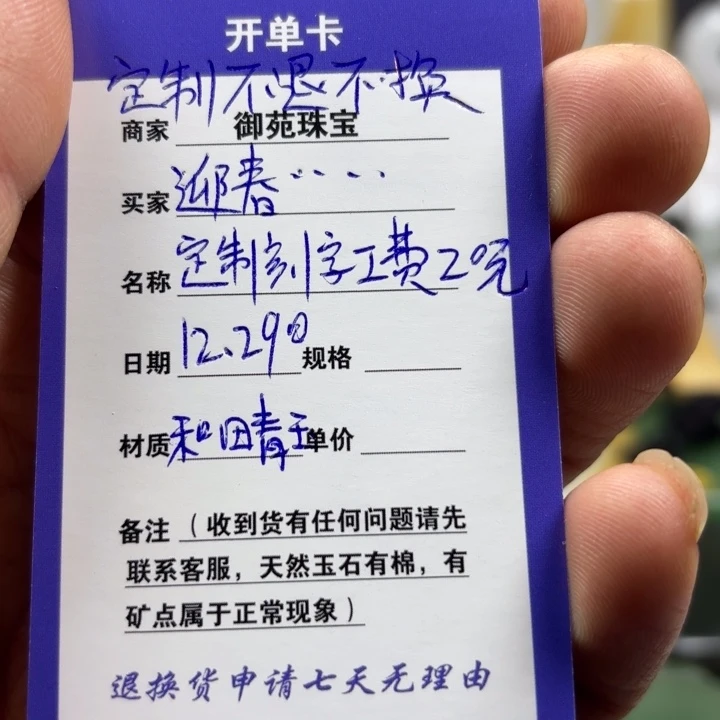 开单卡
定制不退不换
商家 御苑珠宝
买家 迎春……
名称 定制刻字工费20元
日期 12.29日 规格
材质 和田青玉 单价
备注（收到货有任何问题请先
联系客服，天然玉石有棉，有
矿点属于正常现象）
退换货申请七天无理由